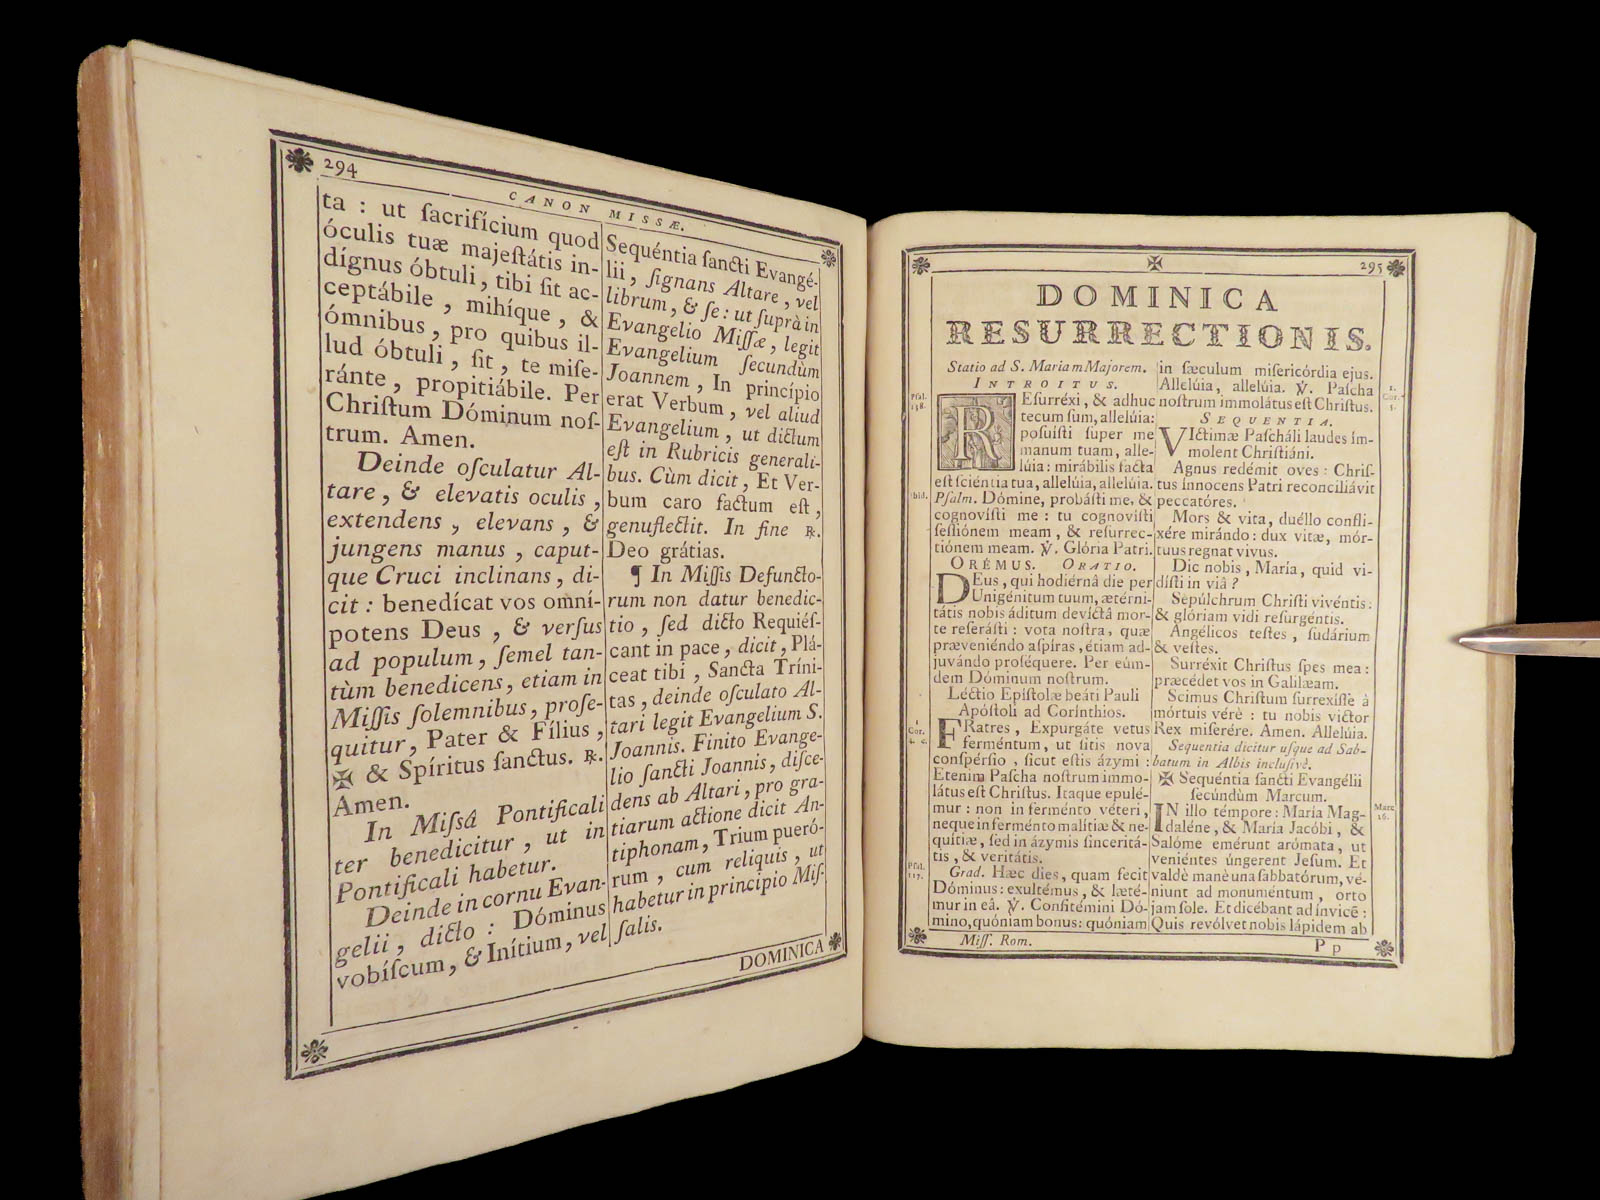 294
CANON MISSÆ.
ta : ut ſacrifícium quod
óculis tuæ majeſtátis in-
dígnus óbtuli, tibi ſit ac-
ceptábile, mihíque, &
ómnibus, pro quibus il-
lud óbtuli, ſit, te miſe-
ránte, propitiábile. Per
Chriſtum Dóminum noſ-
trum. Amen.
Deinde oſculatur Al-
tare, & elevatis oculis,
extendens, elevans, &
jungens manus, caput-
que Cruci inclinans, di-
cit : benedícat vos omní-
potens Deus, & verſus
ad populum, ſemel tan-
tùm benedicens, etiam in
Miſſis ſolemnibus, proſe-
quitur, Pater & Fílius,
✠ & Spíritus ſanctus. ℟.
Amen.
In Miſsâ Pontificali
ter benedicitur, ut in
Pontificali habetur.
Deinde in cornu Evan-
gelii, dicto : Dóminus
vobíſcum, & Inítium, vel
Sequéntia ſancti Evangé-
lii, ſignans Altare, vel
librum, & ſe : ut ſuprà in
Evangelio Miſſæ, legit
Evangelium ſecundùm
Joannem, In princípio
erat Verbum, vel aliud
Evangelium, ut dictum
eſt in Rubricis generali-
bus. Cùm dicit, Et Ver-
bum caro factum eſt,
genuflectit. In fine ℟.
Deo grátias.
¶ In Miſſis Defuncto-
rum non datur benedic-
tio, ſed dicto Requiéſ-
cant in pace, dicit, Plá-
ceat tibi, Sancta Tríni-
tas, deinde oſculato Al-
tari legit Evangelium S.
Joannis. Finito Evange-
lio ſancti Joannis, diſce-
dens ab Altari, pro gra-
tiarum actione dicit An-
tiphonam, Trium pueró-
rum, cum reliquis, ut
habetur in principio Miſ-
ſalis.
DOMINICA
✠
295
DOMINICA
RESURRECTIONIS.
Statio ad S. Mariam Majorem.
INTROITUS.
Pſal.
138.
REſurréxi, & adhuc
tecum ſum, allelúia:
poſuíſti ſuper me
manum tuam, alle-
lúia : mirábilis facta
eſt ſciéntia tua, allelúia, allelúia.
Ibid.
Pſalm. Dómine, probáſti me, &
cognovíſti me : tu cognovíſti
ſeſſiónem meam, & reſurrec-
tiónem meam. ℣. Glória Patri.
ORÉMUS. ORATIO.
DEus, qui hodiérnâ die per
Unigénitum tuum, ætérni-
tátis nobis áditum devíctâ mor-
te reſeráſti : vota noſtra, quæ
præveniéndo aſpíras, étiam ad-
juvándo proſéquere. Per eúm-
dem Dóminum noſtrum.
Léctio Epíſtolæ beáti Pauli
Apóſtoli ad Corínthios.
1
Cor.
FRatres, Expurgáte vetus
ferméntum, ut ſitis nova
conſpérſio, ſicut eſtis ázymi :
Etenim Paſcha noſtrum immo-
látus eſt Chriſtus. Itaque epulé-
mur : non in ferménto véteri,
neque in ferménto malítiæ & ne-
quítiæ, ſed in ázymis ſinceritá-
tis, & veritátis.
Pſal.
117.
Grad. Hæc dies, quam fecit
Dóminus : exultémus, & læté-
mur in eâ. ℣. Confitémini Dó-
mino, quóniam bonus : quóniam
in ſæculum miſericórdia ejus.
Allelúia, allelúia. ℣. Paſcha
noſtrum immolátus eſt Chriſtus.
1.
Cor.
5.
SEQUENTIA.
VIctimæ Paſcháli laudes ím-
molent Chriſtiáni.
Agnus redémit oves : Chriſ-
tus ínnocens Patri reconciliávit
peccatóres.
Mors & vita, duéllo confli-
xére mirándo : dux vitæ, mór-
tuus regnat vivus.
Dic nobis, María, quid vi-
díſti in viâ ?
Sepúlchrum Chriſti vivéntis :
& glóriam vidi reſurgéntis.
Angélicos teſtes, ſudárium
& veſtes.
Surréxit Chriſtus ſpes mea :
præcédet vos in Galilæam.
Scimus Chriſtum ſurrexíſſe à
mórtuis vérè : tu nobis victor
Rex miſerére. Amen. Allelúia.
Sequentia dicitur uſque ad Sab-
batum in Albis incluſivè.
✠ Sequéntia ſancti Evangélii
ſecúndùm Marcum.
Marc
16.
IN illo témpore : María Mag-
daléne, & María Jacóbi, &
Salóme emérunt arómata, ut
veniéntes úngerent Jeſum. Et
valdè manè una ſabbatórum, vé-
niunt ad monuméntum, orto
jam ſole. Et dicébant ad ínvicē :
Quis revólvet nobis lápidem ab
Miſſ. Rom.
P p